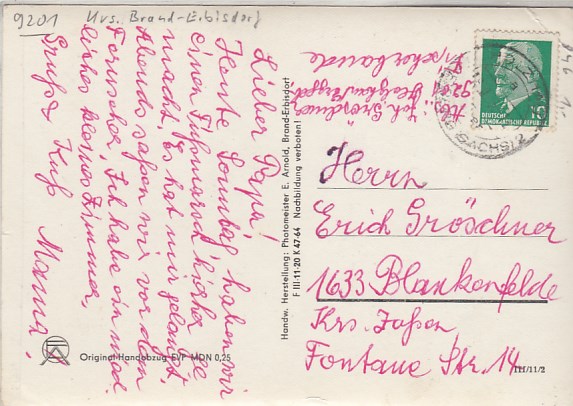 9201 Krs. Brand-Erbisdorf
Lieber Papa!
Heute Sonntag haben wir
einen Fußmarsch hierher ge
macht, Es hat mir gelangt,
Abends saßen wir vor dem
Fernseher, Ich habe ein nied
liches kleines Zimmer,
Gruß + Kuß Mama,
Handw. Herstellung: Photomeister E. Arnold, Brand-Erbisdorf
F III-11-20 K 47-64 Nachbildung verboten!
Original-Handabzug EVP MDN 0,25
Abs.: Gröschner
9201
Fischerbaude
DEUTSCHE
DEMOKRATISCHE REPUBLIK
Herrn
Erich Gröschner
1633 Blankenfelde
Krs. Zossen,
Fontane Str. 14
TH/11/2